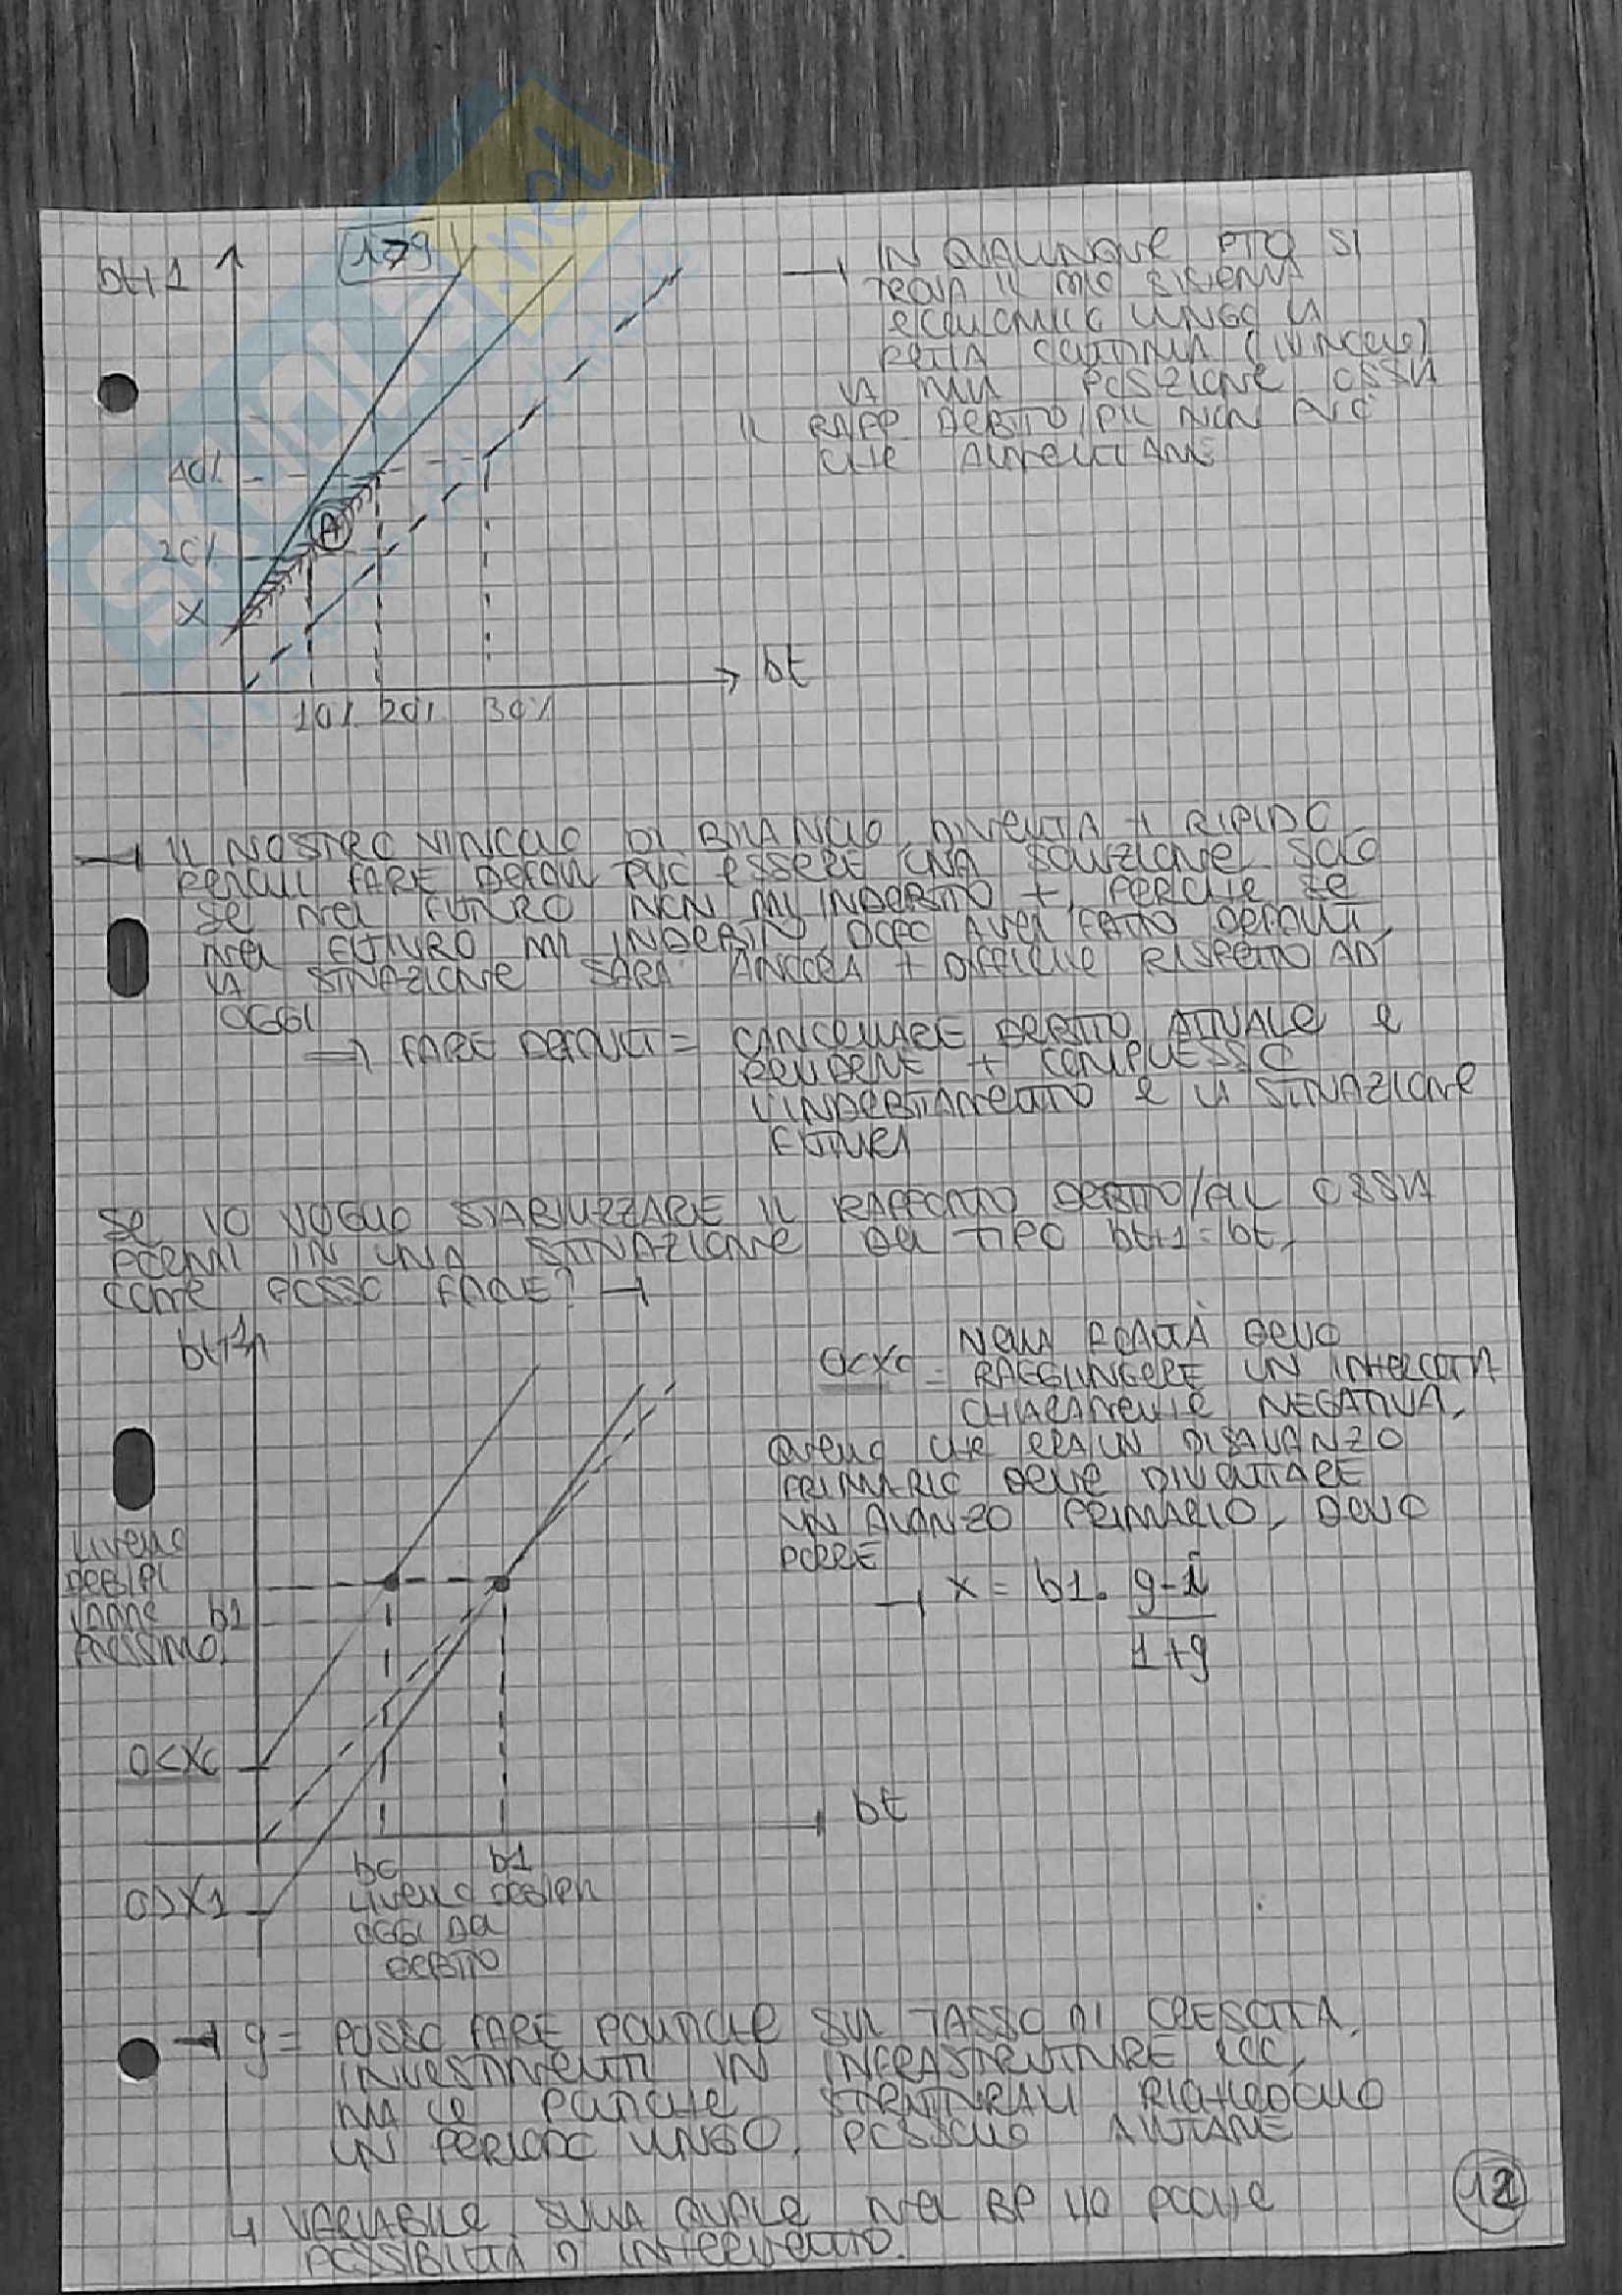 bt+1
i>g
→ IN QUALUNQUE PTO SI
TROVA IL MIO SISTEMA
ECONOMICO LUNGO LA
RETTA CONTINUA (VINCOLO)
LA MIA POSIZIONE OSSIA
IL RAPP DEBITO/PIL NON PUÒ
CHE AUMENTARE
40%
A
20%
X
bt
10% 20% 30%
→ IL NOSTRO VINCOLO DI BILANCIO DIVENTA + RIPIDO
PERCUI FARE DEFAULT PUÒ ESSERE UNA SOLUZIONE SOLO
SE NEL FUTURO NON MI INDEBITO +, PERCHE SE
NEL FUTURO MI INDEBITO, DOPO AVER FATTO DEFAULT,
LA SITUAZIONE SARÀ ANCORA + DIFFICILE RISPETTO AD
OGGI
⇒ FARE DEFAULT = CANCELLARE DEBITO ATTUALE E
RENDERE + COMPLESSO
L'INDEBITAMENTO E LA SITUAZIONE
FUTURA
SE IO VOGLIO STABILIZZARE IL RAPPORTO DEBITO/PIL OSSIA
PORMI IN UNA SITUAZIONE DEL TIPO bt+1=bt,
COME POSSO FARE? →
bt+1
0<X0 = NELLA REALTÀ DEVO
RAGGIUNGERE UN INTERCETTA
CHIARAMENTE NEGATIVA,
QUELLO CHE ERA UN DISAVANZO
PRIMARIO DEVE DIVENTARE
UN AVANZO PRIMARIO, DEVO
PORRE
→ X = b1 · g-i
1+g
LIVELLO
DEB/PIL
ANNO b1
PROSSIMO
0<X0
bt
0>X1
b0 b1
LIVELLO DEB/PIL
OGGI DEL
DEBITO
→ g = POSSO FARE POLITICHE SUL TASSO DI CRESCITA,
INVESTIMENTI IN INFRASTRUTTURE ECC,
MA LE POLITICHE STRUTTURALI RICHIEDONO
UN PERIODO LUNGO, POSSONO AIUTARE
↳ VARIABILE SULLA QUALE NEL BP HO POCHE
POSSIBILITÀ D'INTERVENTO.
12
SKUOLA.net